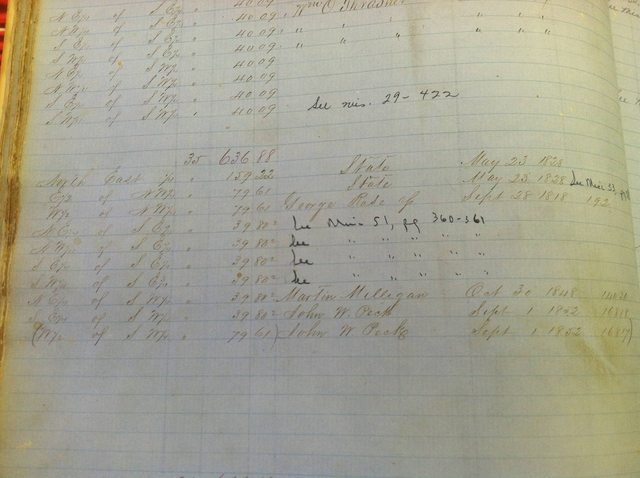 40.09 Wm O Thrasher
N E¼ of S E¼ " 40.09 " " " " "
N W¼ of S E¼ " 40.09 " " " " "
S E¼ of S E¼ " 40.09
S W¼ of S E¼ " 40.09
N E¼ of S W¼ " 40.09
N W¼ of S W¼ " 40.09
S E¼ of S W¼ " 40.09 See mis. 29-422
S W¼ of S W¼ "
35 636.88
North East ¼ " 159.22 State May 23 1828
E½ of N W¼ " 79.61 State May 23 1828 See Misc 53,
W½ of N W¼ " 79.61 George Rose Sept 28 1818 192
N E¼ of S E¼ " 39.80² See Mis 51, pg 360-361
N W¼ of S E¼ " 39.80² See " " " " "
S E¼ of S E¼ " 39.80² See " " " " "
S W¼ of S E¼ " 39.80² See " " " " "
N E¼ of S W¼ " 39.80² Martin Milligan Oct 30 1848
S E¼ of S W¼ " 39.80² John W. Peck Sept 1 1852 16818
(W½ of S W¼ " 79.61) John W Peck Sept 1 1852 16817)